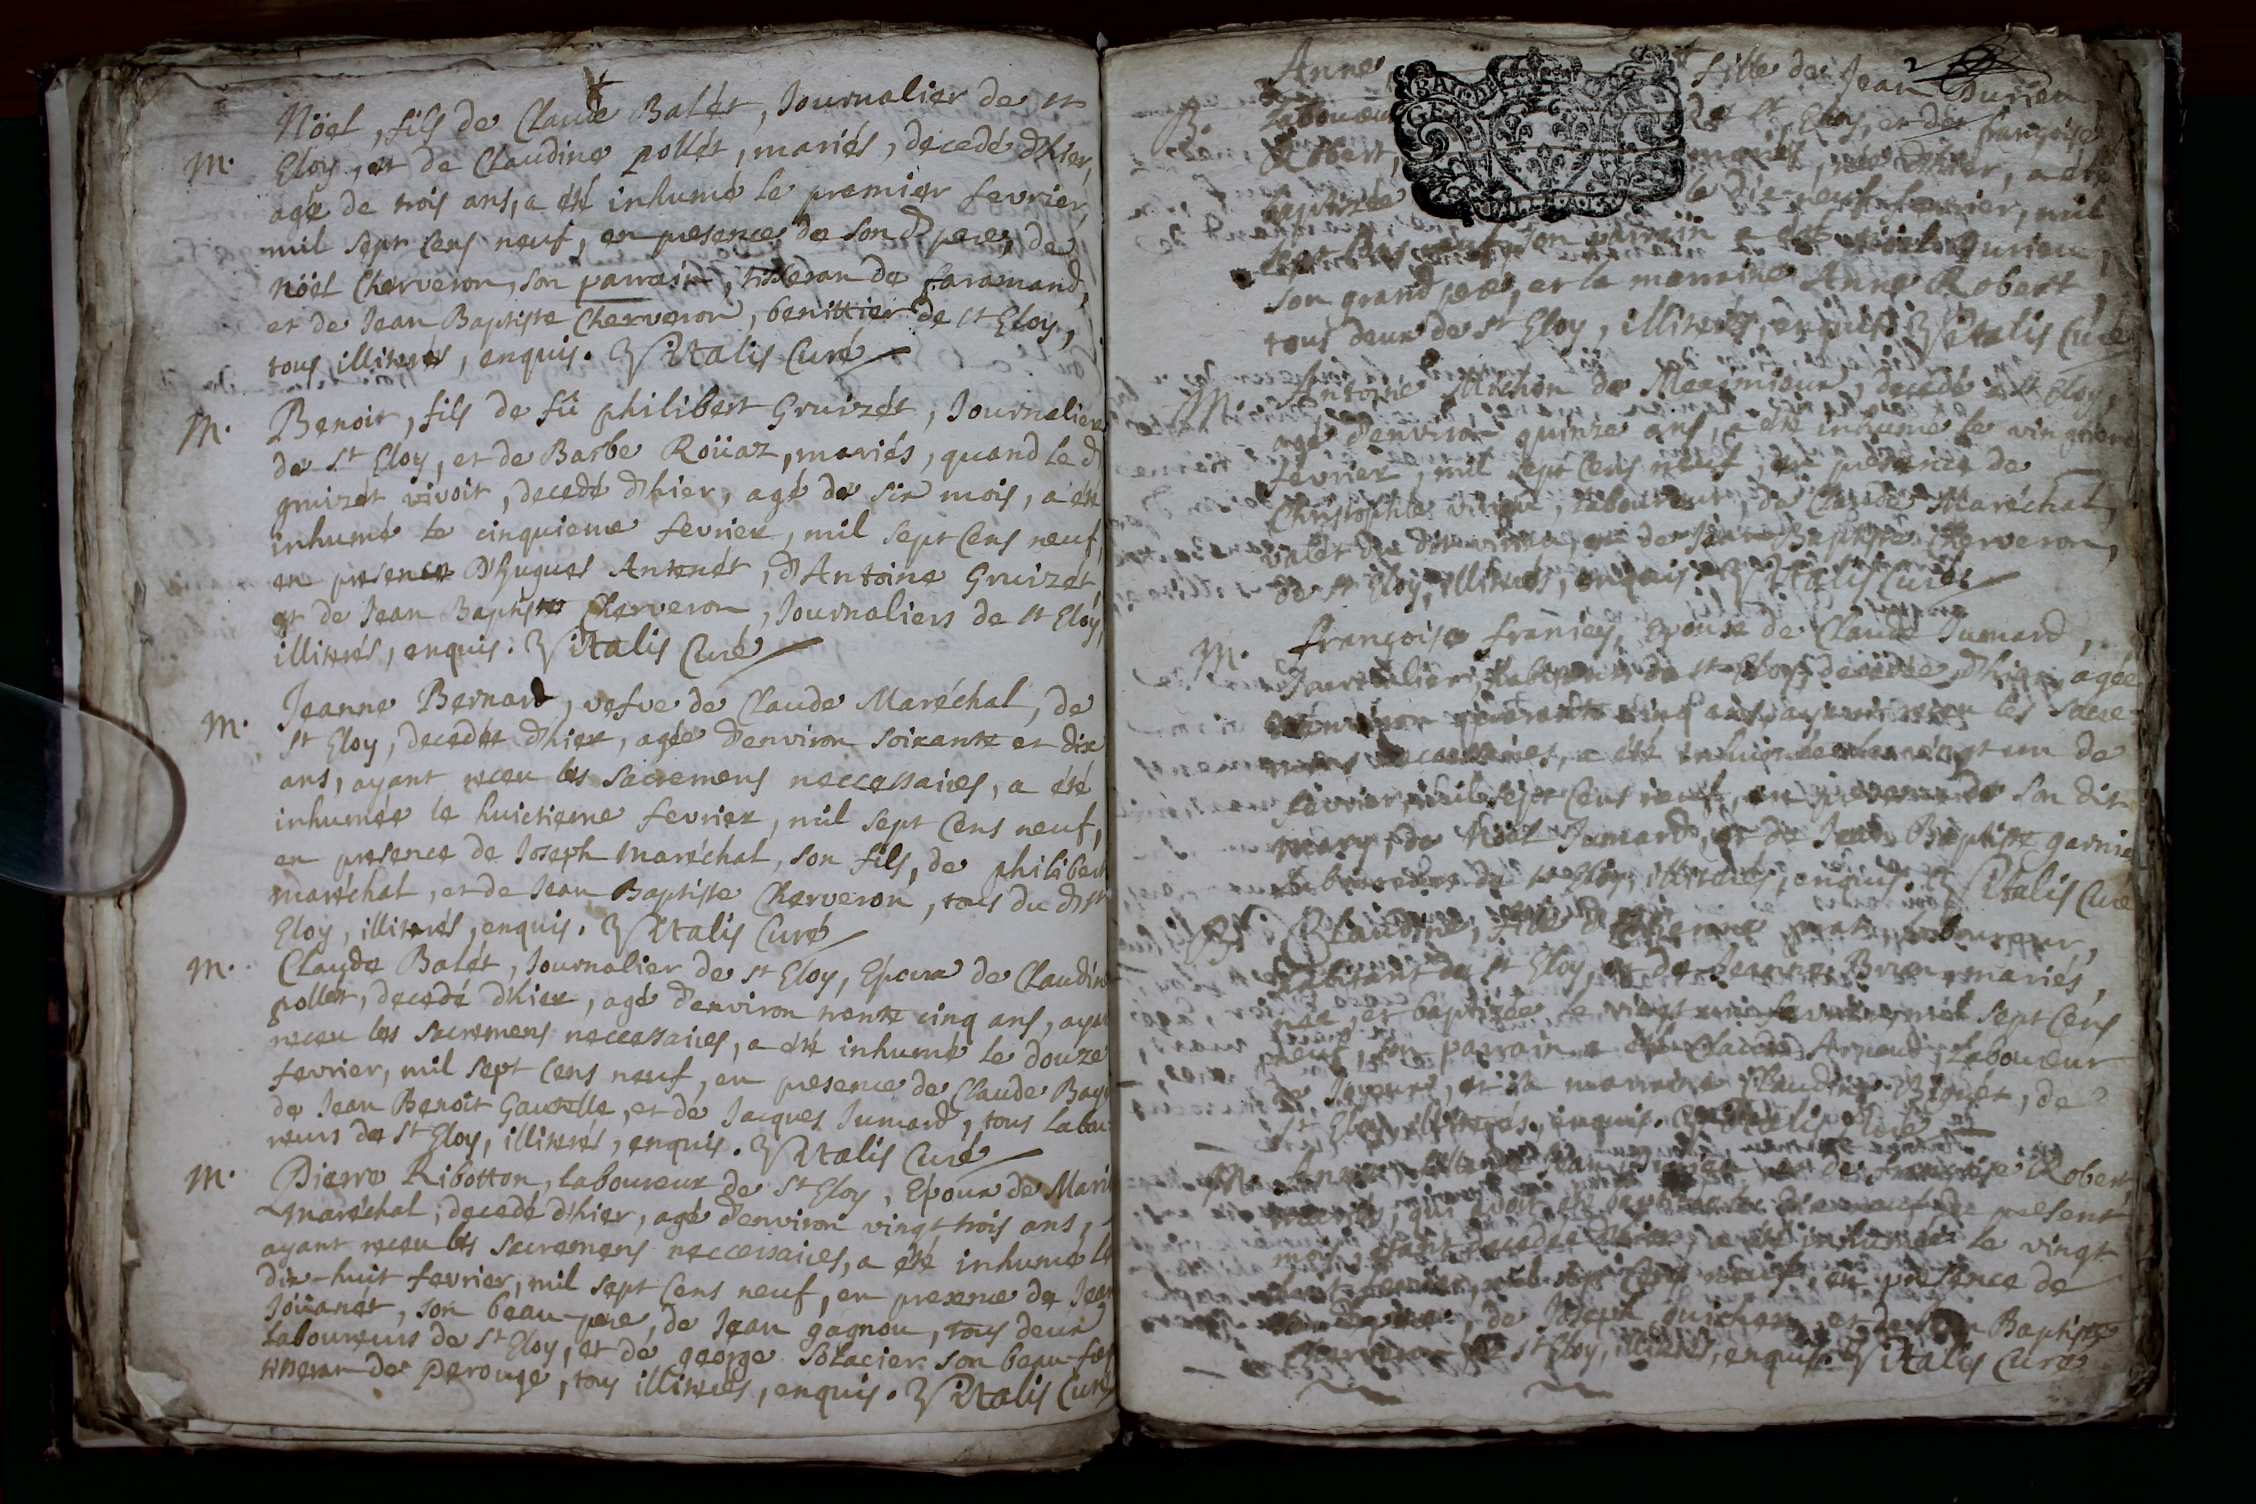 Nöel, fils de Claude Balét, Journalier de st
M. Eloy, et de Claudine pollét, mariés, decedé d'hier,
agé de trois ans, a été inhumé le premier fevrier,
mil sept cens neuf, en presence de son d. pere, de
Nöel Cherveron, son parrain, tisseran de faramand,
et de Jean Baptiste Cherveron, benittier de st Eloy,
tous illiterés, enquis. Vitalis Curé
M. Benoit, fils de fû philibert Gruizét, Journalier
de St Eloy, et de Barbe Roüaz, mariés, quand le d
gruizét vivoit, decedé d'hier, agé de six mois, a été
inhumé le cinquieme fevrier, mil sept cens neuf,
en presence d'Hugues Antonét, d'Antoine Gruizét,
et de Jean Baptiste Cherveron, Journaliers de st Eloy,
illiterés, enquis. Vitalis Curé
M. Jeanne Bernard, vefve de Claude Maréchal, de
St Eloy, decedée d'hier, agée d'environ soixante et dix
ans, ayant receu les sacremens neccessaires, a été
inhumée le huictieme fevrier, mil sept cens neuf,
en presence de Joseph maréchal, son fils, de philibert
maréchal, et de Jean Baptiste Cherveron, tous du d st
Eloy, illiterés, enquis. Vitalis Curé
M. Claude Balét, Journalier de st Eloy, Epoux de Claudine
pollét, decedé d'hier, agé d'environ trente cinq ans, ayant
receu les sacremens neccessaires, a été inhumé le douze
fevrier, mil sept cens neuf, en presence de Claude
de Jean Benoit Gautelle, et de Jacques Jumard, tous labou-
reurs de St Eloy, illiterés, enquis. Vitalis Curé
M. Pierre Ribotton, laboureur de St Eloy, Epoux de Marie
maréchal, decedé d'hier, agé d'environ vingt trois ans,
ayant receu les sacremens neccessaires, a été inhumé le
dix-huit fevrier, mil sept cens neuf, en presence de Jean
Joüanét, son beau-pere, de Jean gagnou, tous deux
laboureurs de St Eloy, et de george Solacier son beau-frere
tisseran de Perouge, tous illiterés, enquis. Vitalis Curé
Anne, fille de Jean Durieu,
B. laboureur de st Eloy, et de françoise
Robert, mariés, née d'hier, a été
baptizée le dix-neuf fevrier, mil
sept cens neuf, son parrain a été Durieu,
son grand pere, et la marraine Anne Robert,
tous deux de st Eloy, illiterés, enquis. Vitalis Curé
M. Antoine Michon de Meximieux, decedé a st Eloy,
agé d'environ quinze ans, a été inhumé le vingtieme
fevrier, mil sept cens neuf, en presence de
Christophle, laboureur, de Claude Maréchal,
valét du dit, et de Jean Baptiste Cherveron,
de st Eloy, illiterés, enquis. Vitalis Curé
M. françoise, Epouse de Claude Jumard,
Journalier, habitant de st Eloy, decedée d'hier, agée
d'environ cinq ans, ayant receu les sacre-
mens neccessaires, a été inhumée le vingt un de
fevrier, mil sept cens neuf, en presence de son dit
mary, de Nöel Jumard, et de Jean Baptiste garnie
de st Eloy, illiterés, enquis. Vitalis Curé
B. Claudine, fille d'Etienne, laboureur,
habitant de st Eloy, et de Jeanne, mariés,
née et baptizée le vingt fevrier, mil sept cens
neuf, son parrain a été Claude Arnaud, laboureur
de Joyeux, et la marraine Claudine, de
St Eloy, illiterés, enquis. Vitalis Curé
M. Anne, fille de Jean Durieu, et de françoise Robert,
mariés, qui avoit été baptizée le dix neuf de present
mois, étant decedée d'hier, a été inhumée le vingt
fevrier, mil sept cens neuf, en presence de
son d. pere, de Joseph, et de Jean Baptiste
Cherveron de st Eloy, illiterés, enquis. Vitalis Curé